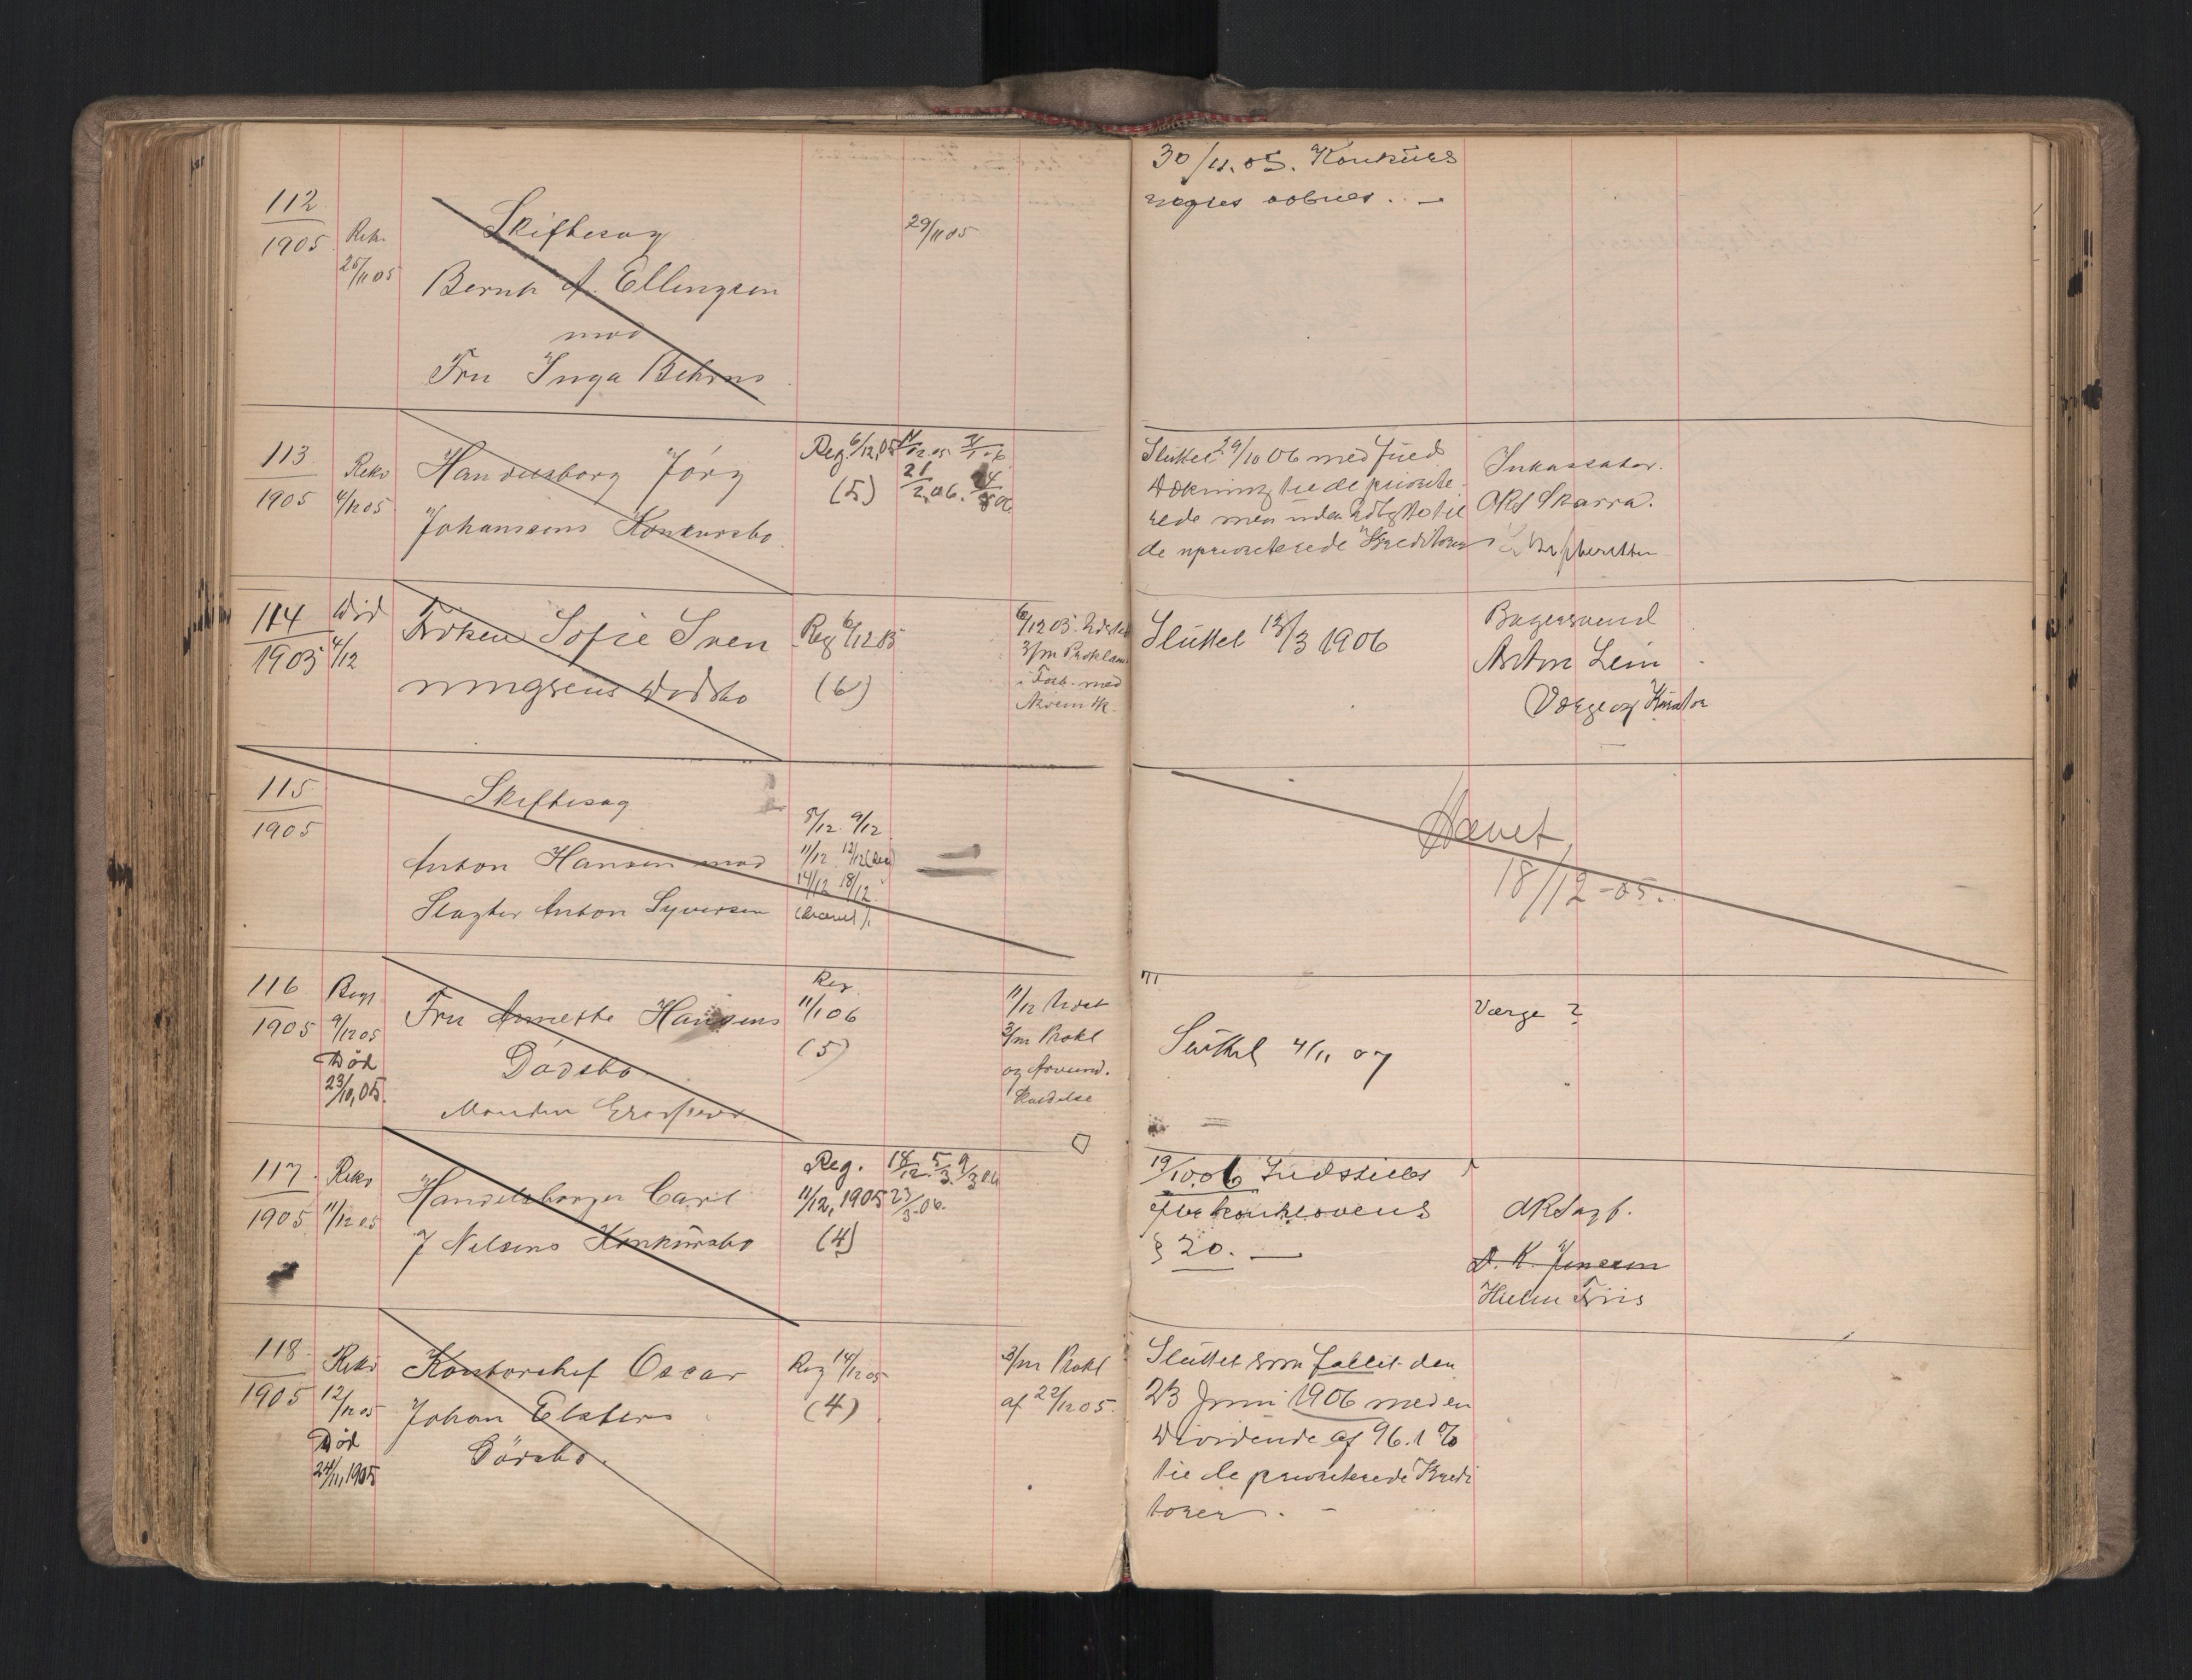 112
1905
Rekv
25/11 05
Skiftesag
Bernh A. Ellingsen
mod
Fru Inga Behrns
29/11 05
30/11.05. Konkurs
nægtes aabnet. –
113
1905
Rekv
4/12 05
Handelsborg Jörg
Johansens Konkursbo
Reg 6/12,05
(5)
11/12.05
21/2.06.
Sluttet 29/10 06 med fuld
Dækning til de priorite
rede men uden Udbytte til
de upriorterede Kreditorer
Inkassator
ORS Skarra.
114
1905
Död
4/12
Fröken Sofie Sven
ningsens Dödsbo
Reg 6/12 05
(6)
6/12 05. Udst
3/m Proklam
i Forb. med
Sluttet 13/3 1906
Bagersvend
Anton Lein
Værge og Kurator
115
1905
Skiftesag
Anton Hansen mod
Slagter Anton Syversen
8/12. 9/12
11/12 12/12
14/12 18/12.
(hævet).
Hævet
18/12-05.
116
1905
Begj
9/12 05
Död
23/10,05.
Fru Annette Hansens
Dödsbo
Reg
11/1 06
(5)
11/12 Udst
3/m Prokl
og Arveind.
kaldelse
Sluttet 4/11 07
Værge ?
117
1905
Rekv
11/12 05
Handelsborger Carl
J Nelsens Konkursbo
Reg.
11/12, 1905
(4)
18/12. 5/3. 9/3 06
23/3.06.
19/10.06 Indstilles
efter konkslovens
§ 20. —
ORSagf.
A. K. Jensen
Hielm Friis
118
1905
Rekv
12/12 05
Död
24/11, 1905
Kontorchef Oscar
Johan Elsters
Dödsbo.
Reg 14/12 05
(4)
3/m Prokl
af 22/12 05.
Sluttet som fallit den
23 Juni 1906 med en
Dividende af 96.1 %
til de prioriterede Kredi
torer. –